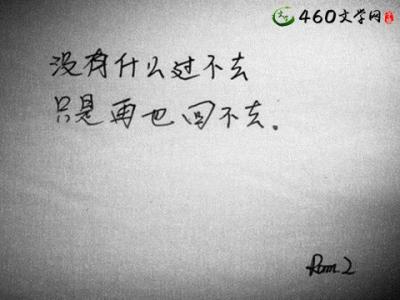 460文学网
没有什么过不去
只是再也回不去.